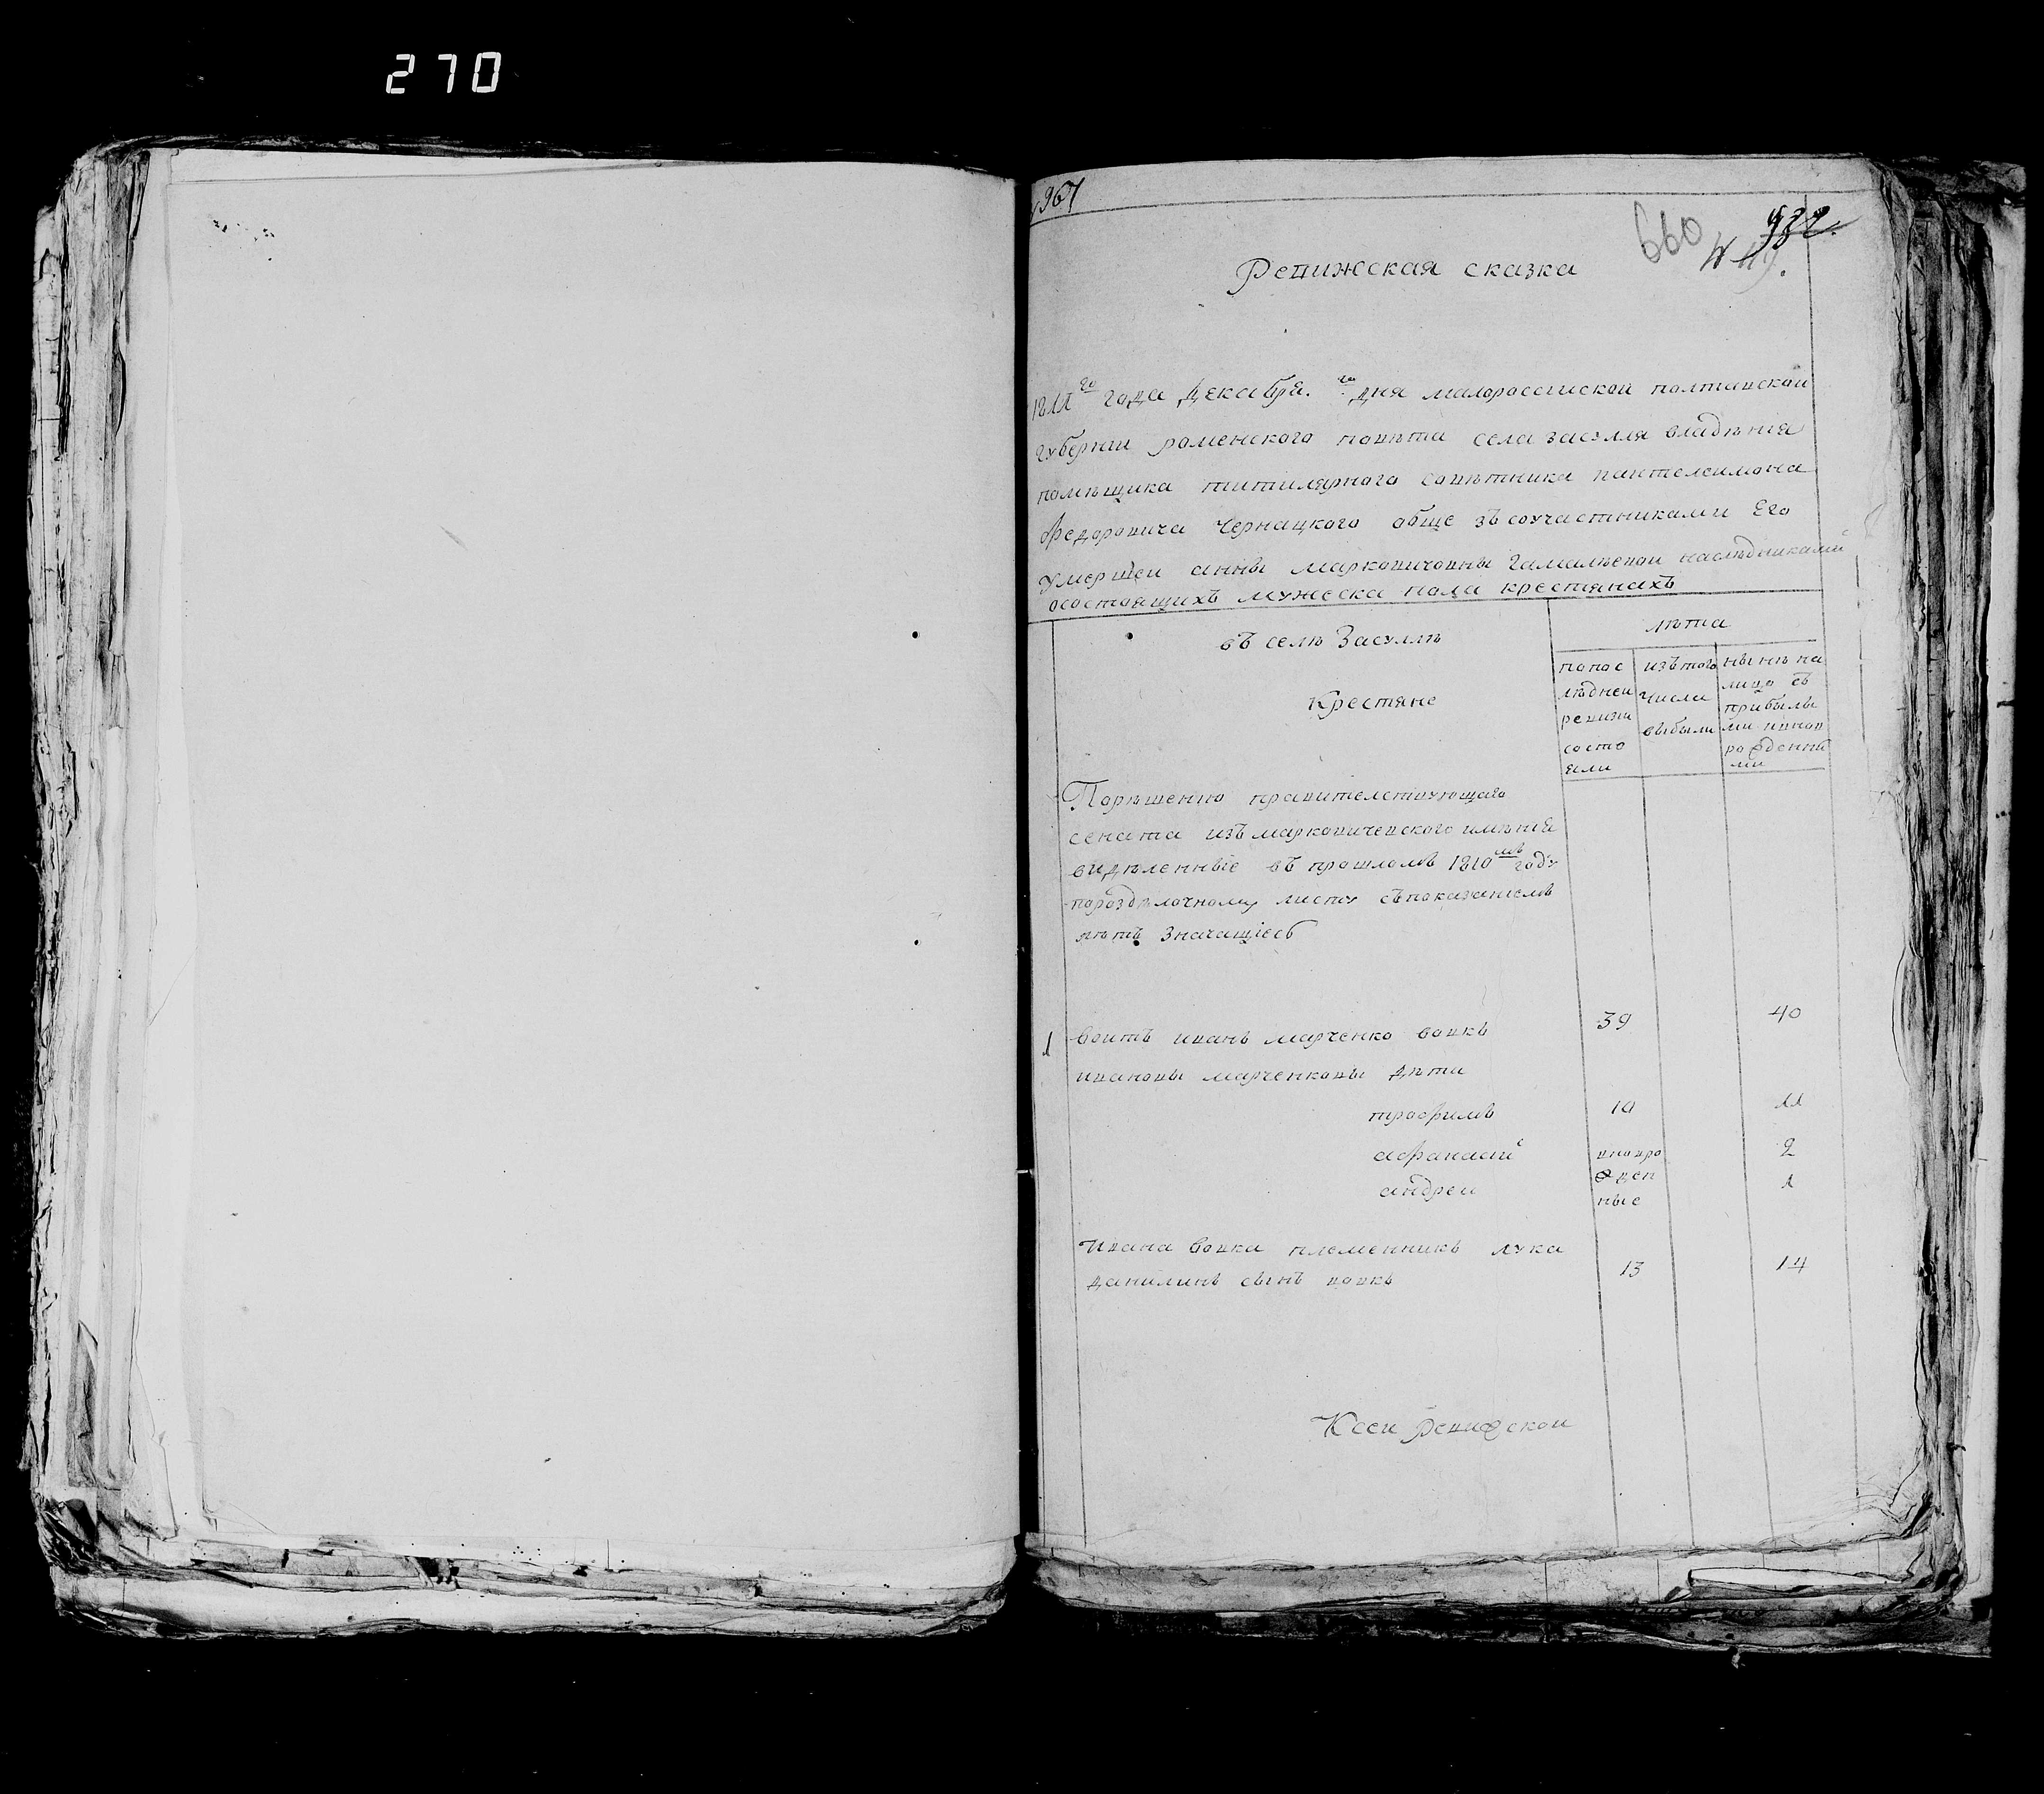 270
967
660
922.
Ревижская сказка
1811го года Декабря. го дня малоросеиской полтавской
губернии роменского повѣта села засулля владѣния
помѣщика титилярного совѣтника пантелеимона
Федоровича Чернацкого обще зъ соучастниками Его
умершеи анны марковичовны Гамалѣевои наслѣдниками
осостоящихъ мужеска пола крестянахъ
въ селѣ Засуллѣ
лѣта
Крестяне
попос
лѣднеи
ревизи
состо
яли
изъ того
числа
выбыли
нынѣ на
лицо съ
прибылы
ми и новп
рожденны
ми
Порѣшению правителствующаго
сената изъ марковичевского имѣния
видѣленные въ прошломъ 1810мъ году
пораздѣлочному листу съ показаниемъ
лѣтъ Значащиесь
1 Воитъ иванъ марченко вовкъ 39 40
ивановы марченковы дѣти
трофимъ 10 11
афанасий вновро 2
андреи жден 1
ные
Ивана Вовка племенникъ лука
данилинъ сынъ вовкъ 13 14
Ксеи Ревижскои